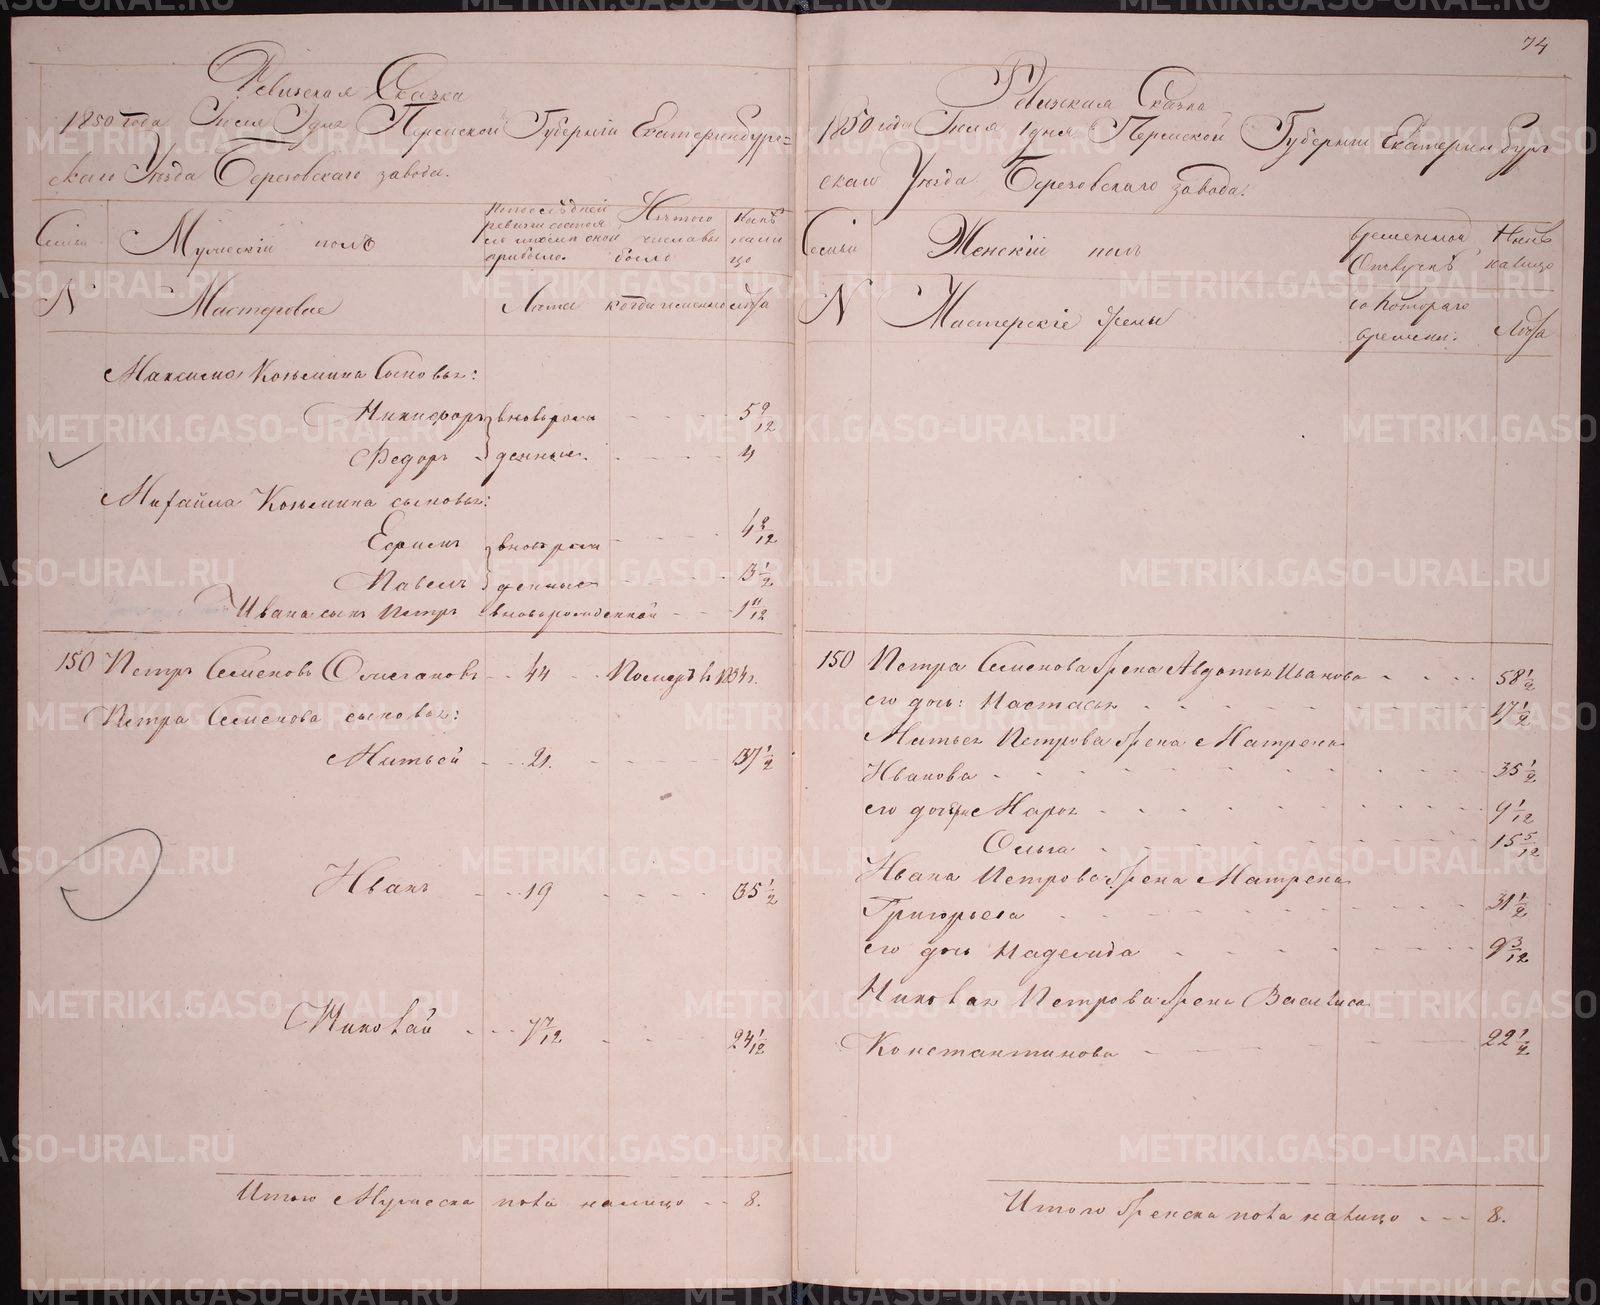 Ревизская Сказка
1850 года Июля 1 дня Пермской Губернии Екатеринбург=
скаго Уезда Березовскаго завода.
Семьи
Мужескій полъ
По последней ревизіи состояло и после оной прибыло.
Изъ того числа выбыло
Ныне на лицо
N
Мастеровые
Лета
когда именно
лета
Максима Козьмина Сыновья:
Никифоръ
вновьрож
5 9/12
Федоръ
денные
4
Михайла Козьмина сыновья:
Ефимъ
вновьрож
Павелъ
денные
3 1/2
Ивана сынъ Петръ вновьрожденной 1 11/12
150 Петръ Семеновъ 44 Померъ в 1834 г.
Петра Семенова сыновья:
Митрей 21. 37 1/2
Иванъ 19 35 1/2
Николай 7 7/12 24 1/12
Итого Мужеска пола налицо 8.
74
Ревизская Сказка
1850 года Июля 1 дня Пермской Губерніи Екатеринбург
скаго Уезда Березовскаго завода.
Семьи
Женскій полъ
Временной Отлучке
Ныне налицо
N
Мастерскіе жены
съ Котораго времени:
Лета
150 Петра Семенова жена Авдотья Иванова 58 1/2
его дочь: Настасья 17 1/2
Петрова жена Матрена
Иванова 35 1/2
его дочери Марья 9 1/12
Ольга 15 5/12
Ивана Петрова жена Матрена
Григорьева 31 1/2
его дочь Надежда 9 3/12
Николая Петрова жена Василиса
Константинова 22 1/2
Итого женска пола налицо 8.
METRIKI.GASO-URAL.RU